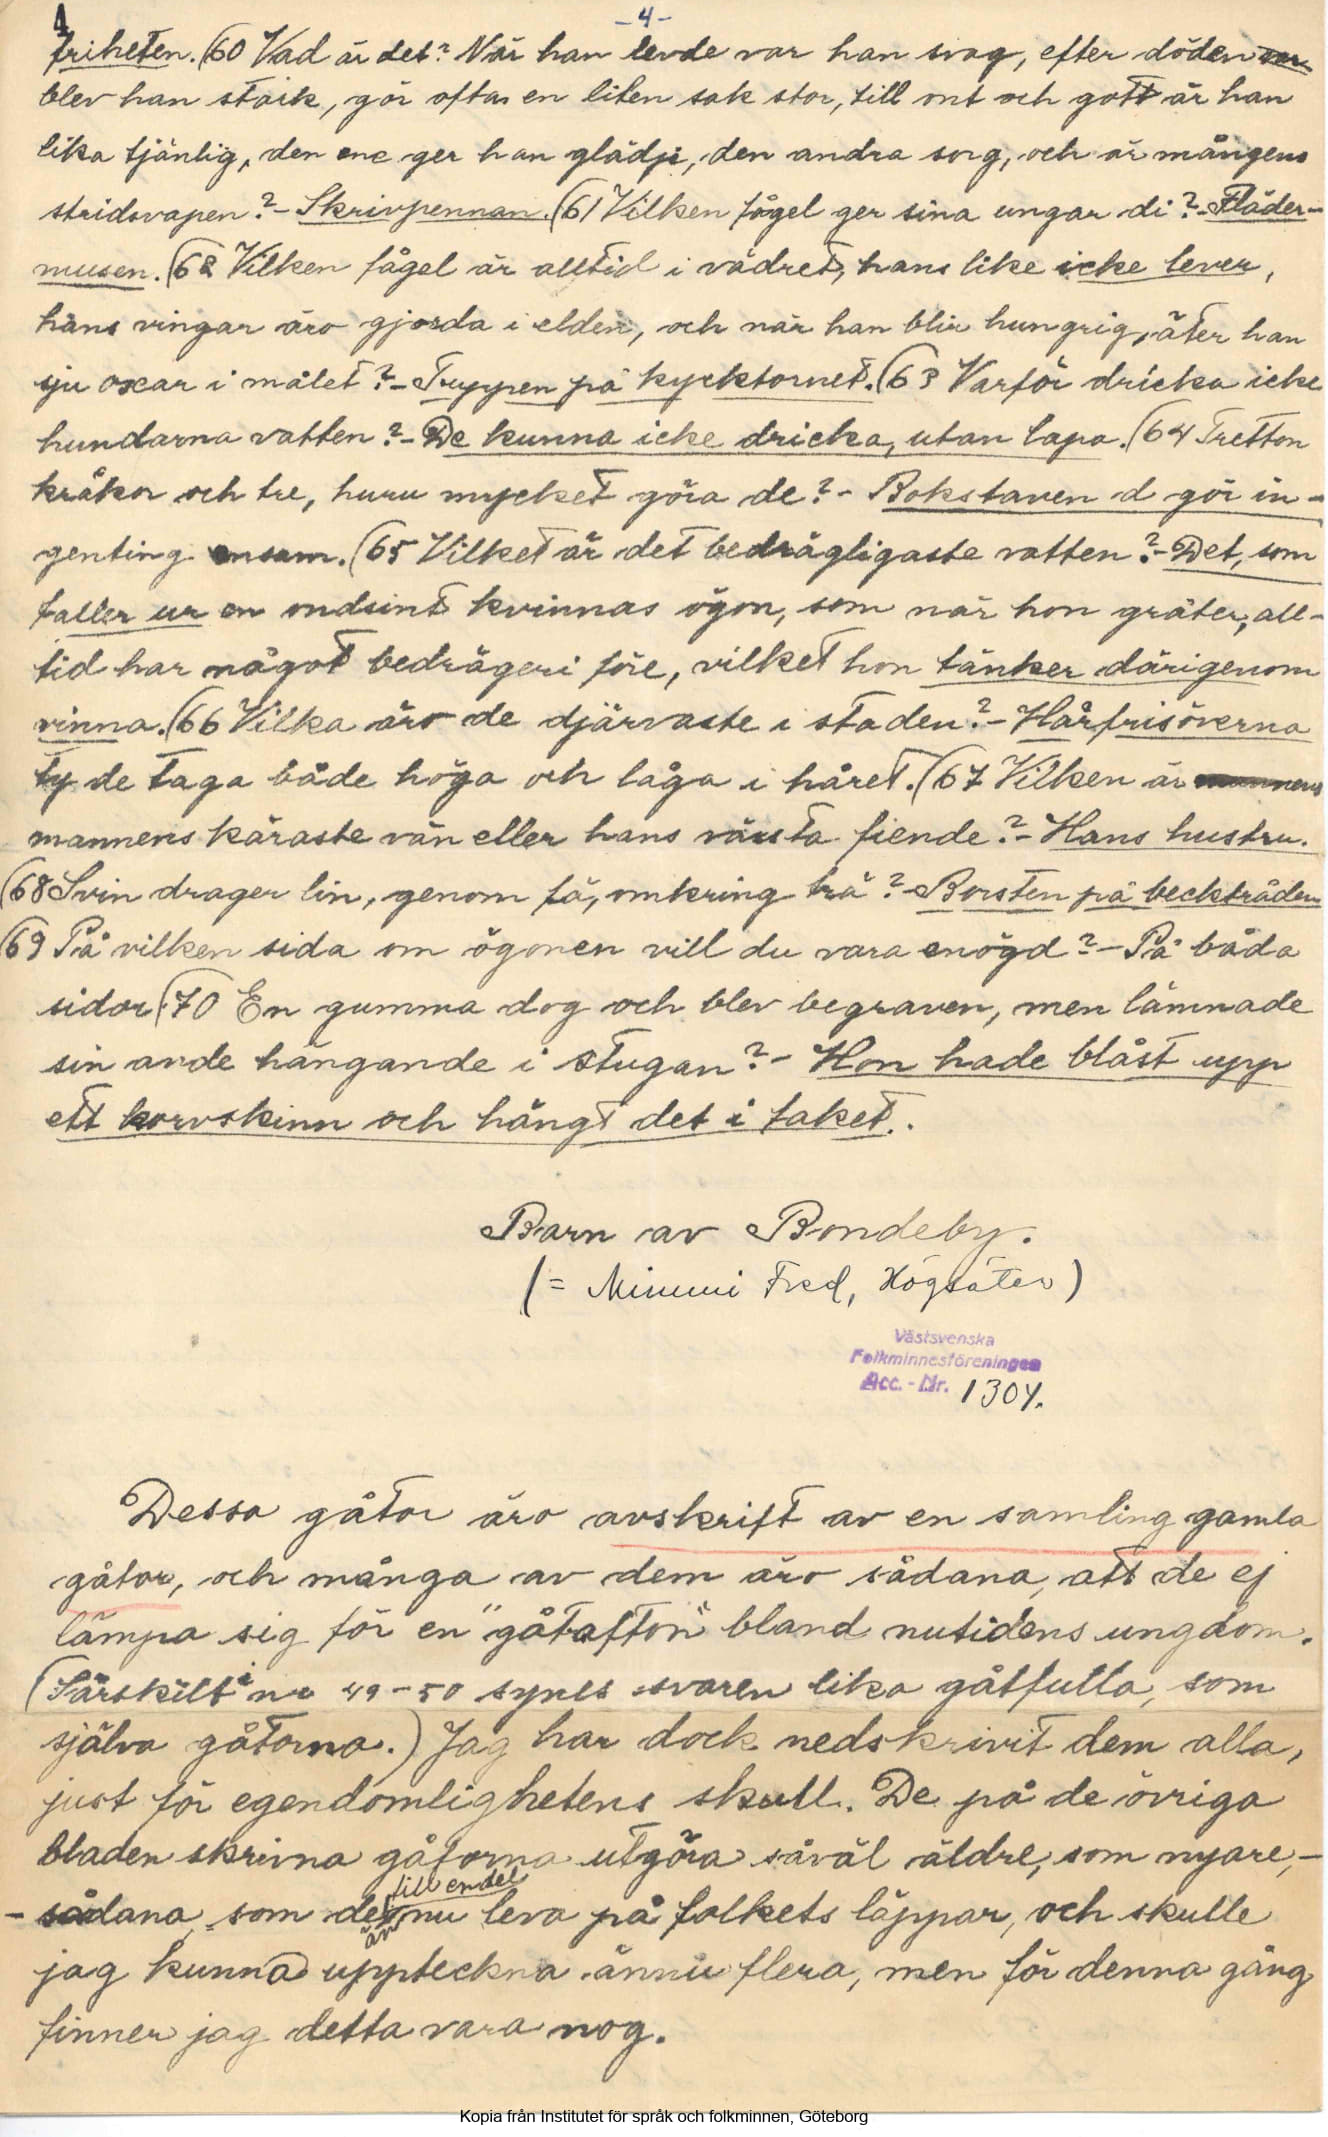 -4-
friheten. (60 Vad är det? När han levde var han svag, efter döden
blev han stark, gör ofta en liten sak stor, till ont och gott är han
lika tjänlig, den ene ger han glädje, den andra sorg, och är mångens
stridsvapen? - Skrivpennan. (61 Vilken fågel ger sina ungar di? - Fläder-
musen. (62 Vilken fågel är alltid i vädret, hans like icke lever,
hans vingar äro gjorda i elden, och när han blir hungrig, äter han
sju oxar i målet? - Tuppen på kycktornet. (63 Varför dricka icke
hundarna vatten? - De kunna icke dricka, utan lapa. (64 Tretton
kråkor och tre, huru mycket göra de? - Bokstaven d gör in-
genting ensam. (65 Vilket är det bedrägligaste vatten? - Det, som
faller ur en ondsint kvinnas ögon, som när hon gråter, all-
tid har något bedrägeri före, vilket hon tänker därigenom
vinna. (66 Vilka äro de djärvaste i staden? - Hårfrisörerna
ty de taga både höga och låga i håret. (67 Vilken är
mannens käraste vän eller hans värsta fiende? - Hans hustru.
(68 Svin drager lin, genom fä, omkring trä? - Borsten på beckträden
(69 På vilken sida om ögonen vill du vara enögd? - På båda
sidor (70 En gumma dog och blev begraven, men lämnade
sin ande hängande i stugan? - Hon hade blåst upp
ett korvskinn och hängt det i taket.
Barn av Bondeby.
(= Mimmi Fred, Högsäter)
Västsvenska
Folkminnesföreningen
Acc.-Nr. 1304.
Dessa gåtor äro avskrift av en samling gamla
gåtor, och många av dem äro sådana, att de ej
lämpa sig för en "gåtafton" bland nutidens ungdom.
(Särskilt i nr 49-50 synes svaren lika gåtfulla, som
själva gåtorna.) Jag har dock nedskrivit dem alla,
just för egendomlighetens skull. De på de övriga
bladen skrivna gåtorna utgöra såväl äldre, som nyare, -
till endel
- sådana, som de än nu leva på folkets läppar, och skulle
jag kunna uppteckna ännu flera, men för denna gång
finner jag detta vara nog.
Kopia från Institutet för språk och folkminnen, Göteborg